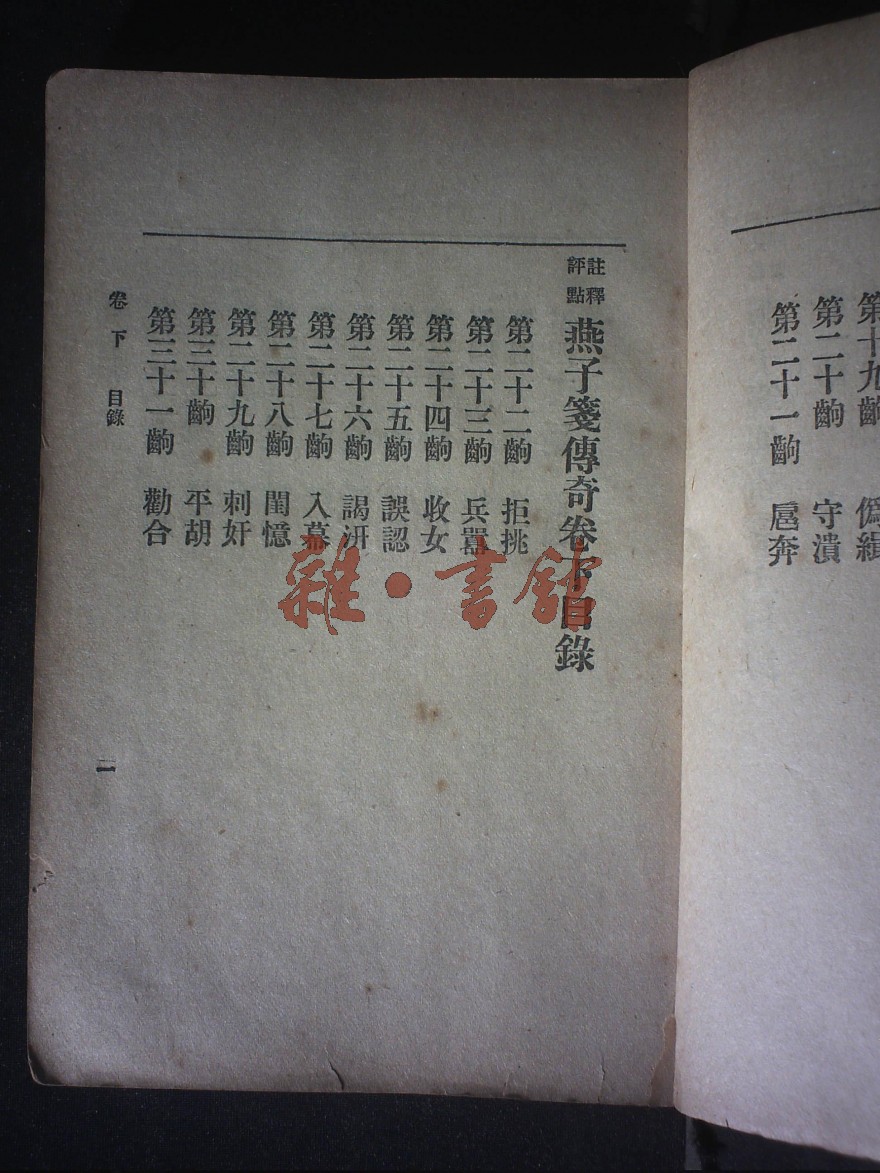 第十九齣 偽緝
第二十齣 守潰
第二十一齣 扈奔
註釋
評點
燕子箋傳奇卷下目錄
第二十二齣 拒挑
第二十三齣 兵囂
第二十四齣 收女
第二十五齣 誤認
第二十六齣 謁汧
第二十七齣 入幕
第二十八齣 閨憶
第二十九齣 刺奸
第三十齣 平胡
第三十一齣 勸合
卷下 目錄
雜·書舘